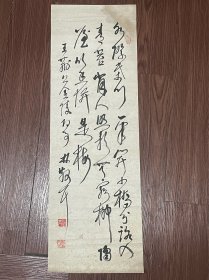 水際柴門一半開小橋分路入
青苔背人照影無窮柳隔
屋吹香並是梅
王荊公金陵即事 林散耳